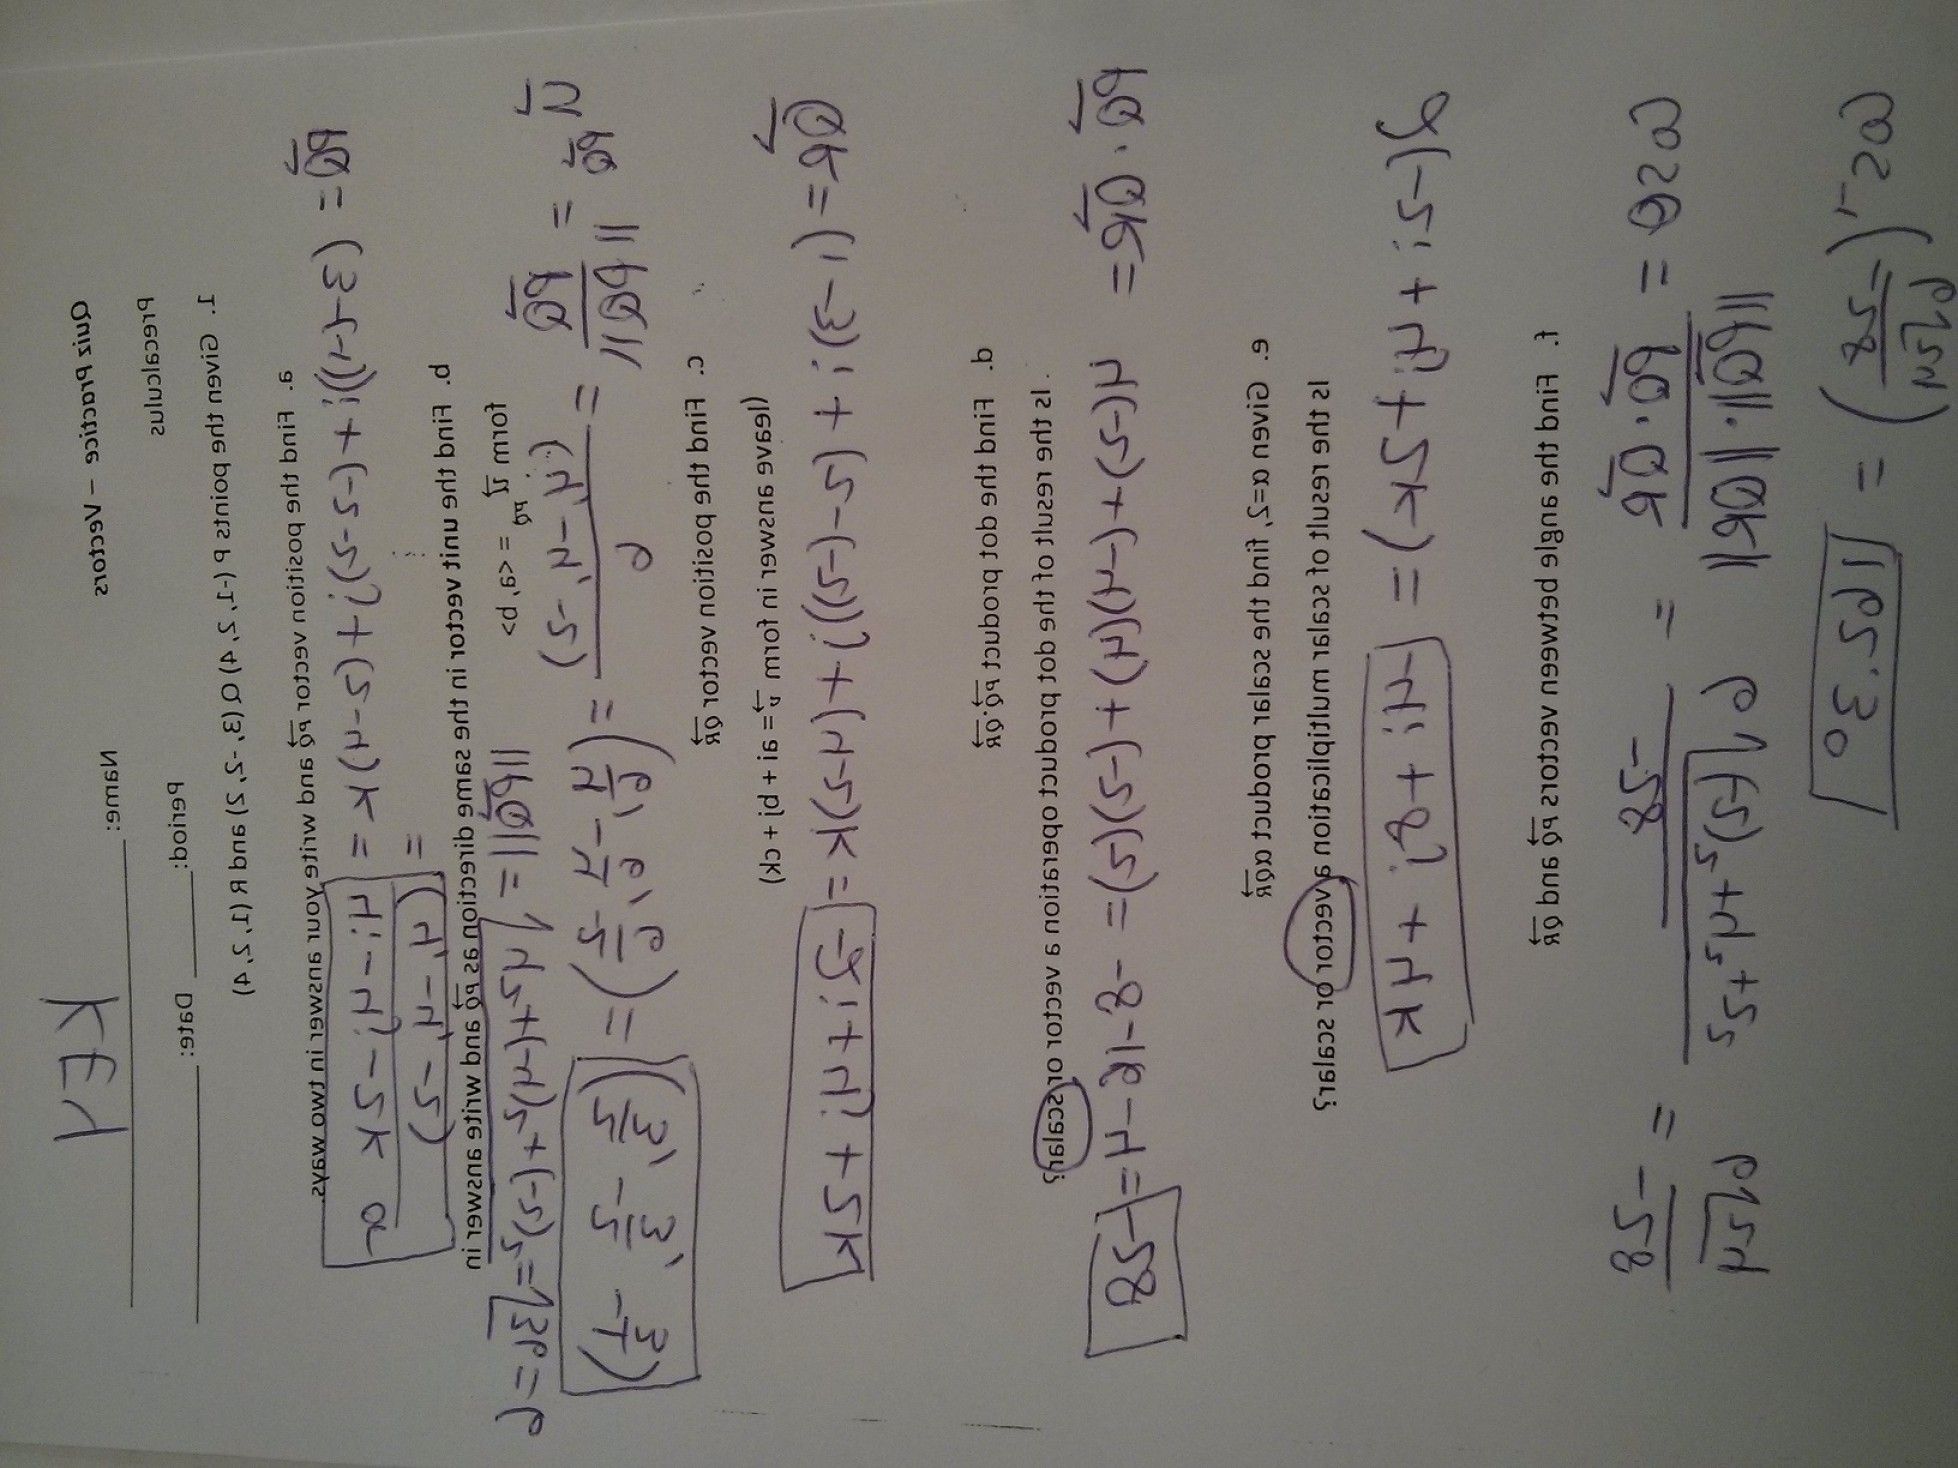 Quiz Practice – Vectors Name: KEY
Precalculus Period: Date:
1. Given the points P (-1, 2, 4) Q (3, -2, 2) and R (1, 2, 4)
a. Find the position vector PQ and write your answer in two ways.
PQ = (3-(-1))i + (-2-2)j + (2-4)k = 4i - 4j - 2k or
= ⟨4, -4, -2⟩
b. Find the unit vector in the same direction as PQ and write answer in
form u PQ = <a, b> ||PQ|| = √4²+(-4)²+(-2)² = √36 = 6
u PQ = PQ / ||PQ|| = ⟨4, -4, -2⟩ / 6 = ⟨4/6, -4/6, -2/6⟩ = ⟨2/3, -2/3, -1/3⟩
c. Find the position vector QR
(leave answer in form v = ai + bj + ck)
QR = (1-3)i + (2-(-2))j + (4-2)k = -2i + 4j + 2k
d. Find the dot product PQ·QR
Is the result of the dot product operation a vector or scalar?
PQ · QR = 4(-2) + (-4)(4) + (-2)(2) = -8-16-4 = -28
e. Given α=2, find the scalar product αQR
Is the result of scalar multiplication a vector or scalar?
2(-2i + 4j + 2k) = -4i + 8j + 4k
f. Find the angle between vectors PQ and QR
cosθ = QR · PQ / ||QR|| · ||PQ|| = -28 / √2²+4²+2² 6 = -28 / 6√24
cos⁻¹(-28 / 6√24) = 162.3°